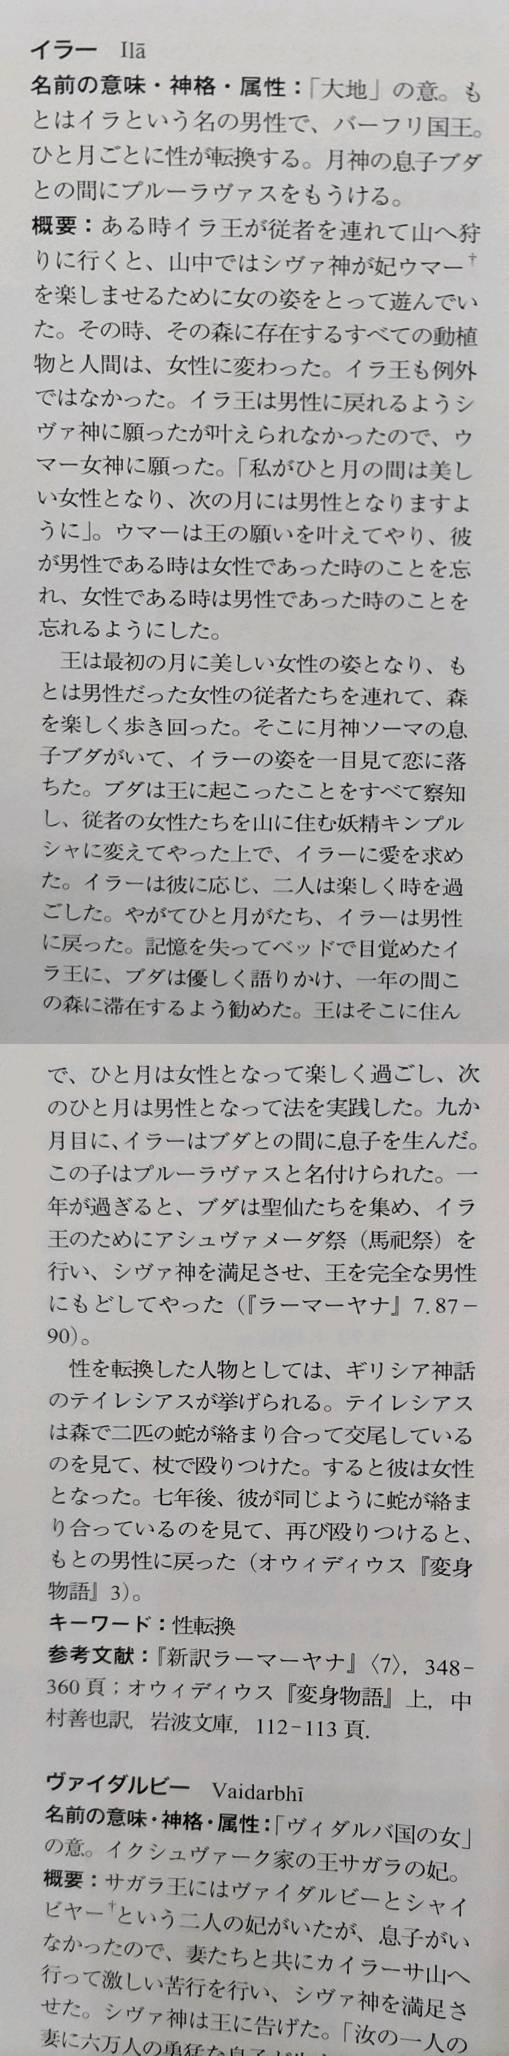 イラー　Ilā
名前の意味・神格・属性：「大地」の意。も
とはイラという名の男性で、バーフリ国王。
ひと月ごとに性が転換する。月神の息子ブダ
との間にプルーラヴァスをもうける。
概要：ある時イラ王が従者を連れて山へ狩
りに行くと、山中ではシヴァ神が妃ウマー†
を楽しませるために女の姿をとって遊んでい
た。その時、その森に存在するすべての動植
物と人間は、女性に変わった。イラ王も例外
ではなかった。イラ王は男性に戻れるようシ
ヴァ神に願ったが叶えられなかったので、ウ
マー女神に願った。「私がひと月の間は美し
い女性となり、次の月には男性となりますよ
うに」。ウマーは王の願いを叶えてやり、彼
が男性である時は女性であった時のことを忘
れ、女性である時は男性であった時のことを
忘れるようにした。
　王は最初の月に美しい女性の姿となり、も
とは男性だった女性の従者たちを連れて、森
を楽しく歩き回った。そこに月神ソーマの息
子ブダがいて、イラーの姿を一目見て恋に落
ちた。ブダは王に起こったことをすべて察知
し、従者の女性たちを山に住む妖精キンプル
シャに変えてやった上で、イラーに愛を求め
た。イラーは彼に応じ、二人は楽しく時を過
ごした。やがてひと月がたち、イラーは男性
に戻った。記憶を失ってベッドで目覚めたイ
ラ王に、ブダは優しく語りかけ、一年の間こ
の森に滞在するよう勧めた。王はそこに住ん
で、ひと月は女性となって楽しく過ごし、次
のひと月は男性となって法を実践した。九か
月目に、イラーはブダとの間に息子を生んだ。
この子はプルーラヴァスと名付けられた。一
年が過ぎると、ブダは聖仙たちを集め、イラ
王のためにアシュヴァメーダ祭（馬祀祭）を
行い、シヴァ神を満足させ、王を完全な男性
にもどしてやった（『ラーマーヤナ』7. 87−
90)。
　性を転換した人物としては、ギリシア神話
のテイレシアスが挙げられる。テイレシアス
は森で二匹の蛇が絡まり合って交尾している
のを見て、杖で殴りつけた。すると彼は女性
となった。七年後、彼が同じように蛇が絡ま
り合っているのを見て、再び殴りつけると、
もとの男性に戻った（オウィディウス『変身
物語』3)。
キーワード：性転換
参考文献：『新訳ラーマーヤナ』〈7〉, 348−
360頁；オウィディウス『変身物語』上, 中
村善也訳, 岩波文庫, 112−113頁.
ヴァイダルビー　Vaidarbhī
名前の意味・神格・属性：「ヴィダルバ国の女」
の意。イクシュヴァーク家の王サガラの妃。
概要：サガラ王にはヴァイダルビーとシャイ
ビヤー†という二人の妃がいたが、息子がい
なかったので、妻たちと共にカイラーサ山へ
行って激しい苦行を行い、シヴァ神を満足さ
せた。シヴァ神は王に告げた。「汝の一人の
妻に六万人の勇猛な息子が